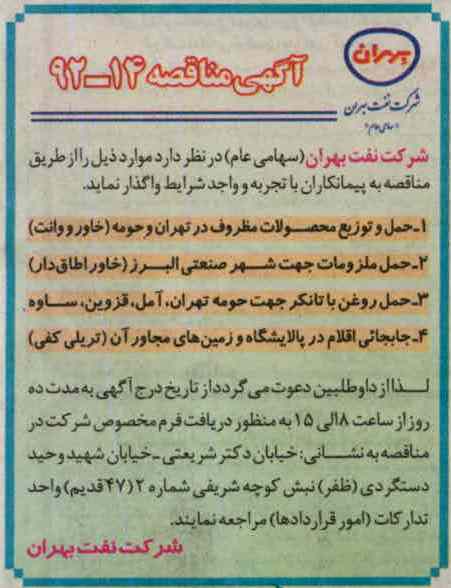 بهران
آگهی مناقصه ۱۴-۹۲
شرکت نفت بهران
«سهامی عام»
شرکت نفت بهران (سهامی عام) در نظر دارد موارد ذیل را از طریق
مناقصه به پیمانکاران با تجربه و واجد شرایط واگذار نماید.
۱-حمل و توزیع محصولات مظروف در تهران و حومه (خاور و وانت)
۲-حمل ملزومات جهت شهر صنعتی البرز (خاور اطاق‌دار)
۳-حمل روغن با تانکر جهت حومه تهران، آمل، قزوین، ساوه
۴-جابجائی اقلام در پالایشگاه و زمین‌های مجاور آن (تریلی کفی)
لذا از داوطلبین دعوت می‌گردد از تاریخ درج آگهی به مدت ده
روز از ساعت ۸ الی ۱۵ به منظور دریافت فرم مخصوص شرکت در
مناقصه به نشانی: خیابان دکتر شریعتی - خیابان شهید وحید
دستگردی (ظفر) نبش کوچه شریفی شماره ۲ (۴۷ قدیم) واحد
تدارکات (امور قراردادها) مراجعه نمایند.
شرکت نفت بهران